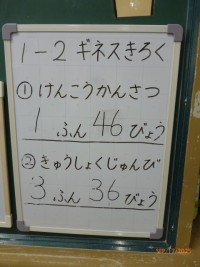 1-2 ギネスきろく
①けんこうかんさつ
1 ふん 46 びょう
②きゅうしょくじゅんび
3 ふん 36 びょう